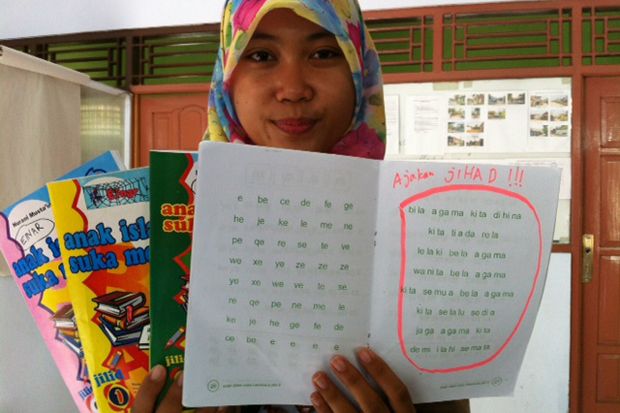 Nurani Musta'in
ENAR
anak isla
suka me
anak isla
suka me
jilid 1
ana
suka
jilid
e be ce de fe ge
he je ke le me ne
pe qe re se te ve
we xe ye ze ze ze
ye xe we ve te se
re qe pe ne me le
ke je he ge fe de
ce be e e e e
Ajakan JIHAD !!!
bi la a ga ma ki ta di hi na
ki ta ti a da re la
le la ki be la a ga ma
wa ni ta be la a ga ma
ki ta se mu a be la a ga ma
ki ta se la lu se di a
ja ga a ga ma ki ta
de mi i la hi se ma ta